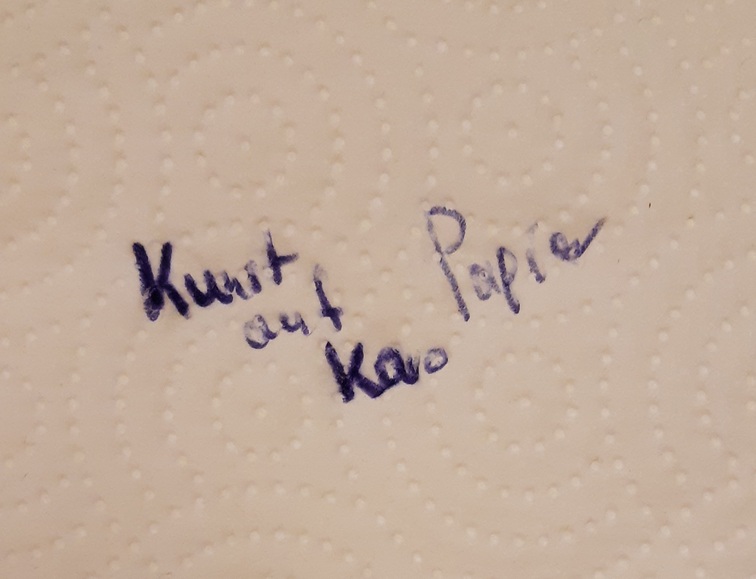 Kunst
auf
Karo
Papier